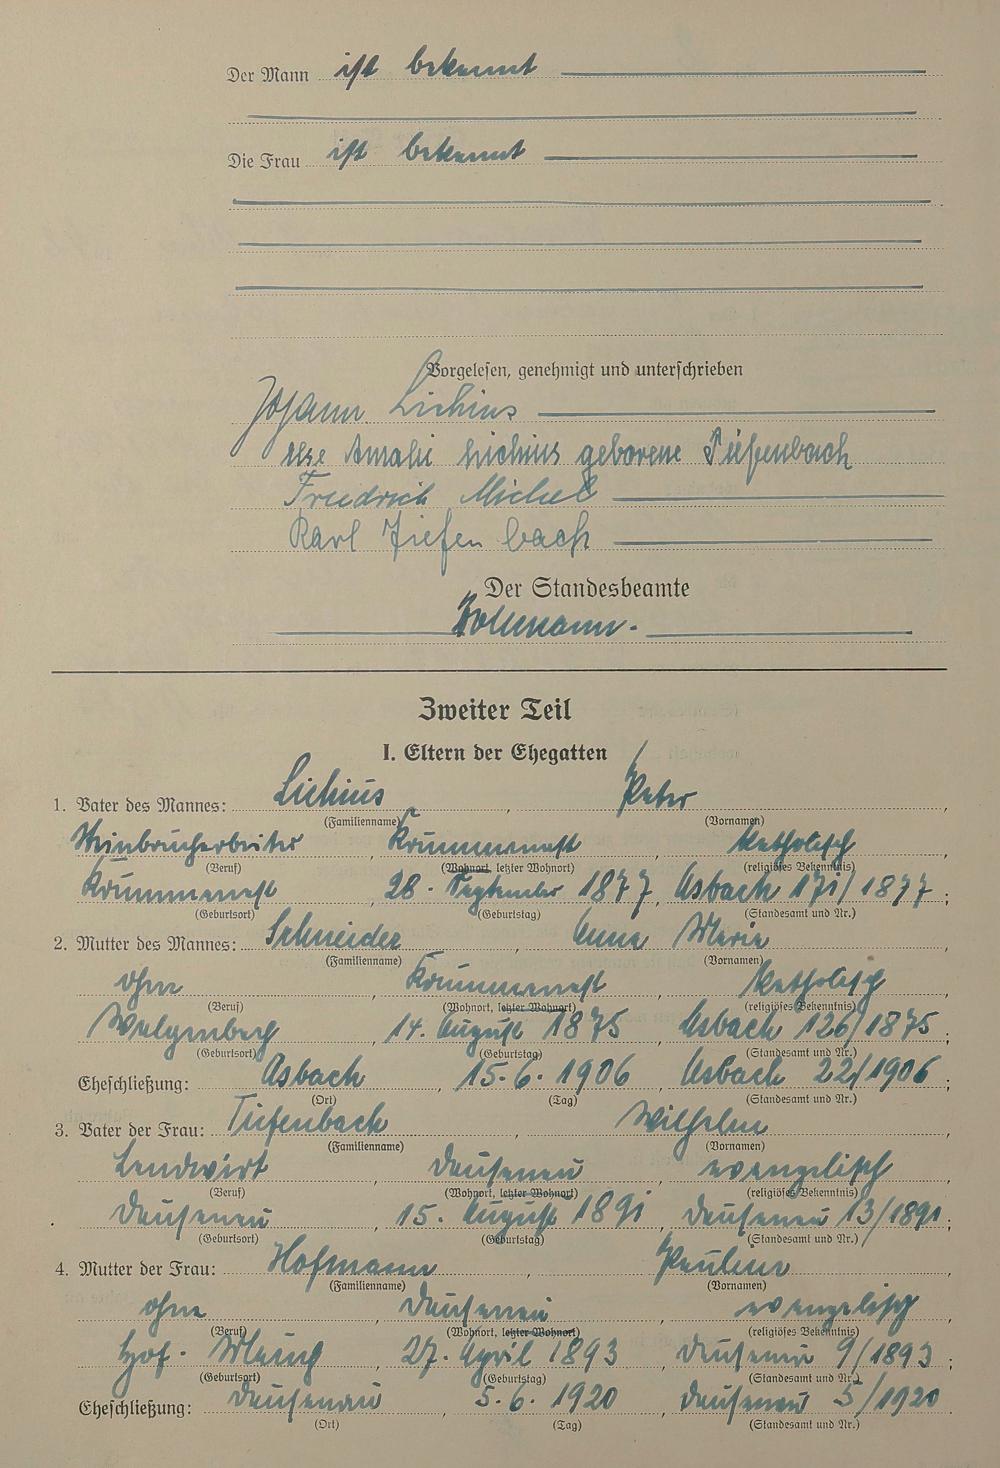 Der Mann ist bekannt
Die Frau ist bekannt
Vorgelesen, genehmigt und unterschrieben
Johann Lichius
Else Amalie Lichius geborene Tiefenbach
Friedrich Michel
Karl Tiefenbach
Der Standesbeamte
Zweiter Teil
I. Eltern der Ehegatten
1. Vater des Mannes: Lichius, Peter,
(Familienname) (Vornamen)
Steinbrucharbeiter, Krummenast, katholisch
(Beruf) (Wohnort, letzter Wohnort) (religiöses Bekenntnis)
Krummenast, 28. September 1877, Asbach 171/1877;
(Geburtsort) (Geburtstag) (Standesamt und Nr.)
2. Mutter des Mannes: Schneider, Anna Maria,
(Familienname) (Vornamen)
ohne, Krummenast, katholisch
(Beruf) (Wohnort, letzter Wohnort) (religiöses Bekenntnis)
14. August 1875, Asbach 126/1875;
(Geburtsort) (Geburtstag) (Standesamt und Nr.)
Eheschließung: Asbach, 15.6.1906, Asbach 22/1906;
(Ort) (Tag) (Standesamt und Nr.)
3. Vater der Frau: Tiefenbach, Wilhelm,
(Familienname) (Vornamen)
Landwirt, Dausenau, evangelisch
(Beruf) (Wohnort, letzter Wohnort) (religiöses Bekenntnis)
Dausenau, 15. August 1891, Dausenau 13/1891;
(Geburtsort) (Geburtstag) (Standesamt und Nr.)
4. Mutter der Frau: Hofmann, Pauline,
(Familienname) (Vornamen)
ohne, Dausenau, evangelisch
(Beruf) (Wohnort, letzter Wohnort) (religiöses Bekenntnis)
Hof. Mauch, 27. April 1893, Dausenau 9/1893;
(Geburtsort) (Geburtstag) (Standesamt und Nr.)
Eheschließung: Dausenau, 5.6.1920, Dausenau 5/1920
(Ort) (Tag) (Standesamt und Nr.)